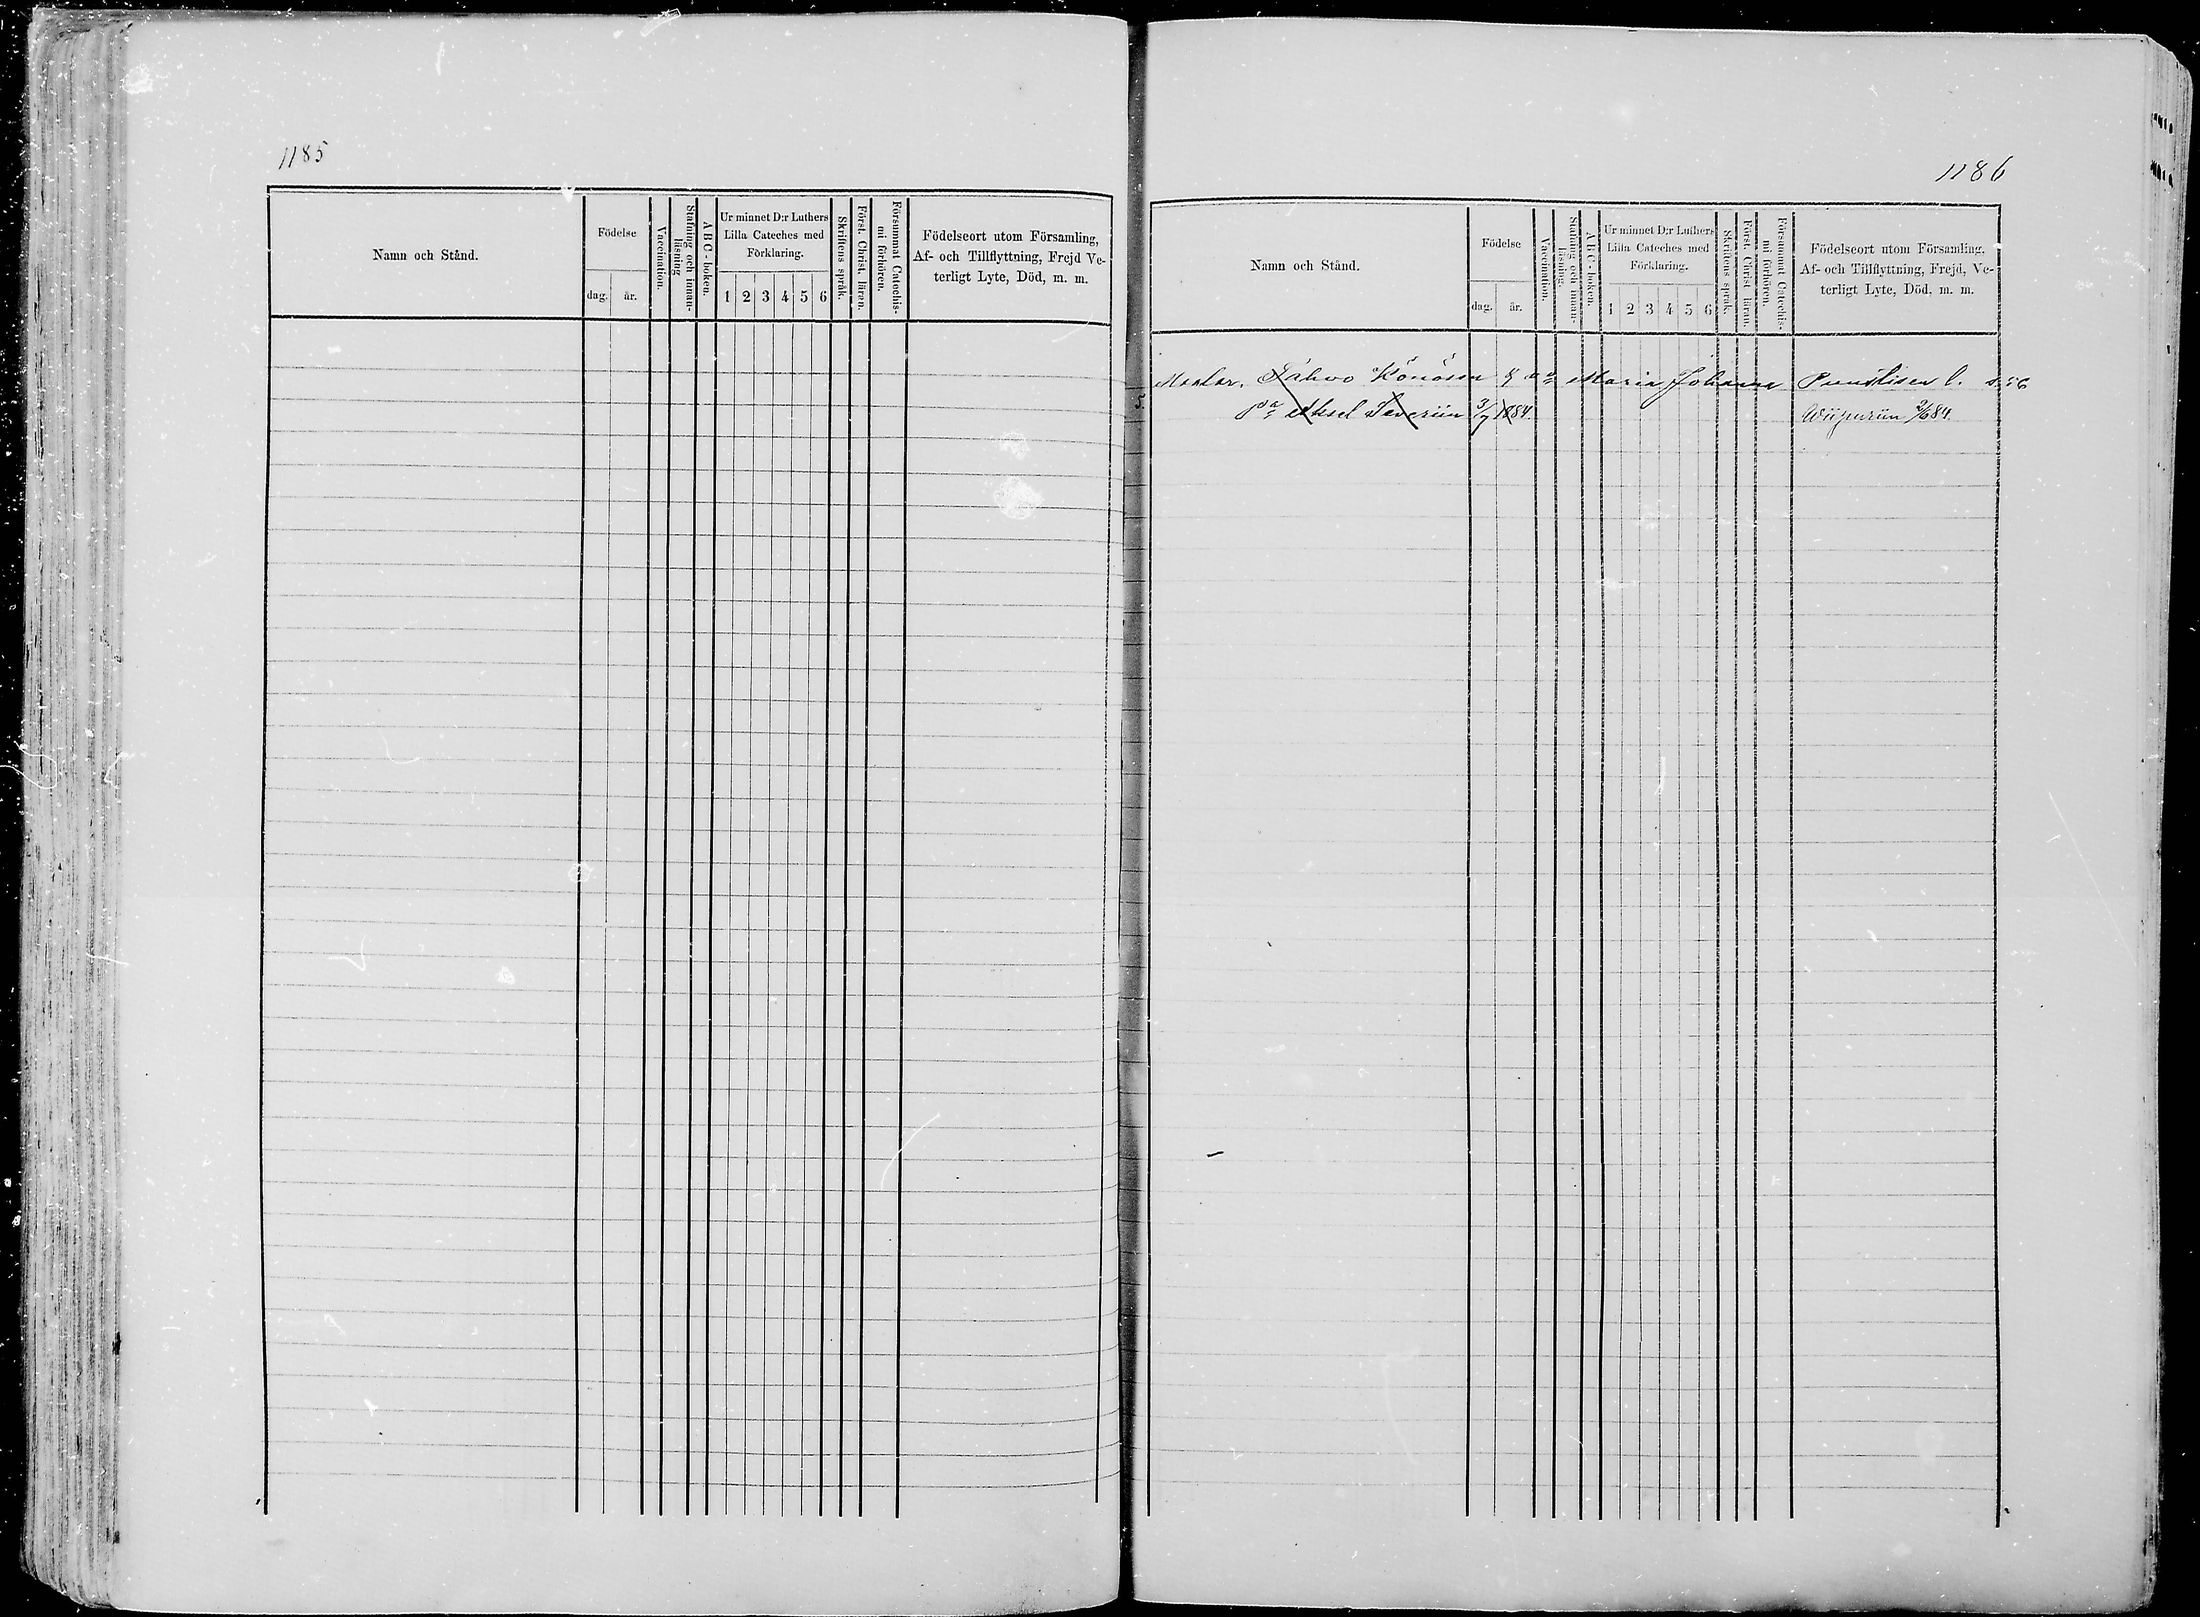 1185
Namn och Stånd.
Födelse
dag.
år.
Vaccination.
Stafning och innan-
läsning
ABC-boken.
Ur minnet D:r Luthers
Lilla Cateches med
Förklaring.
1 2 3 4 5 6
Skriftens språk.
Först. Christ. läran.
Försummat Catechis-
mi förhören.
Födelseort utom Församling,
Af- och Tillflyttning, Frejd Ve-
terligt Lyte, Död, m. m.
1186
Namn och Stånd.
Födelse
dag.
år.
Vaccination.
Stafning och innan-
läsning
ABC-boken.
Ur minnet D:r Luthers
Lilla Cateches med
Förklaring.
1 2 3 4 5 6
Skriftens språk.
Först. Christ läran.
Försummat Catechis-
mi förhören.
Födelseort utom Församling.
Af- och Tillflyttning, Frejd, Ve-
terligt Lyte, Död, m. m.
Pahvo Könösen Maria Johanna
Aksel Severiin 3/7 1884. Wiipuriin